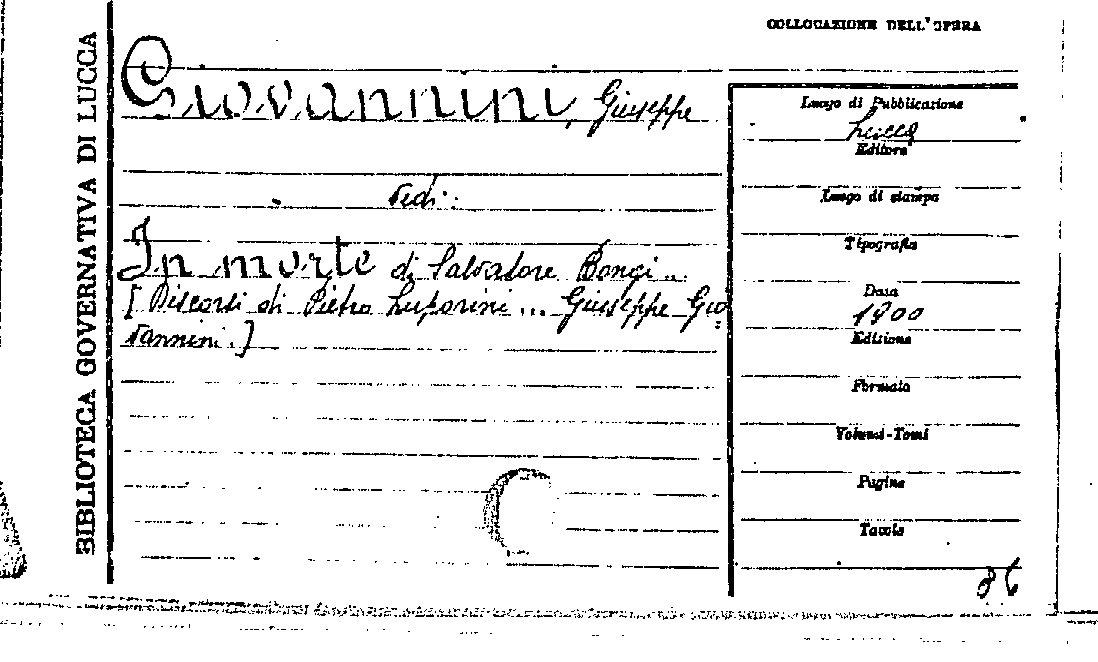 COLLOCAZIONE DELL'OPERA
BIBLIOTECA GOVERNATIVA DI LUCCA
Giovannini, Giuseppe
vedi:
In morte di Salvadore Bongi...
[Discorsi di Pietro Luporini... Giuseppe Gio=
vannini.]
Luogo di Pubblicazione
Lucca
Editore
Luogo di stampa
Tipografia
Data
1900
Edizione
Formato
Volumi-Tomi
Pagine
Tavole
86